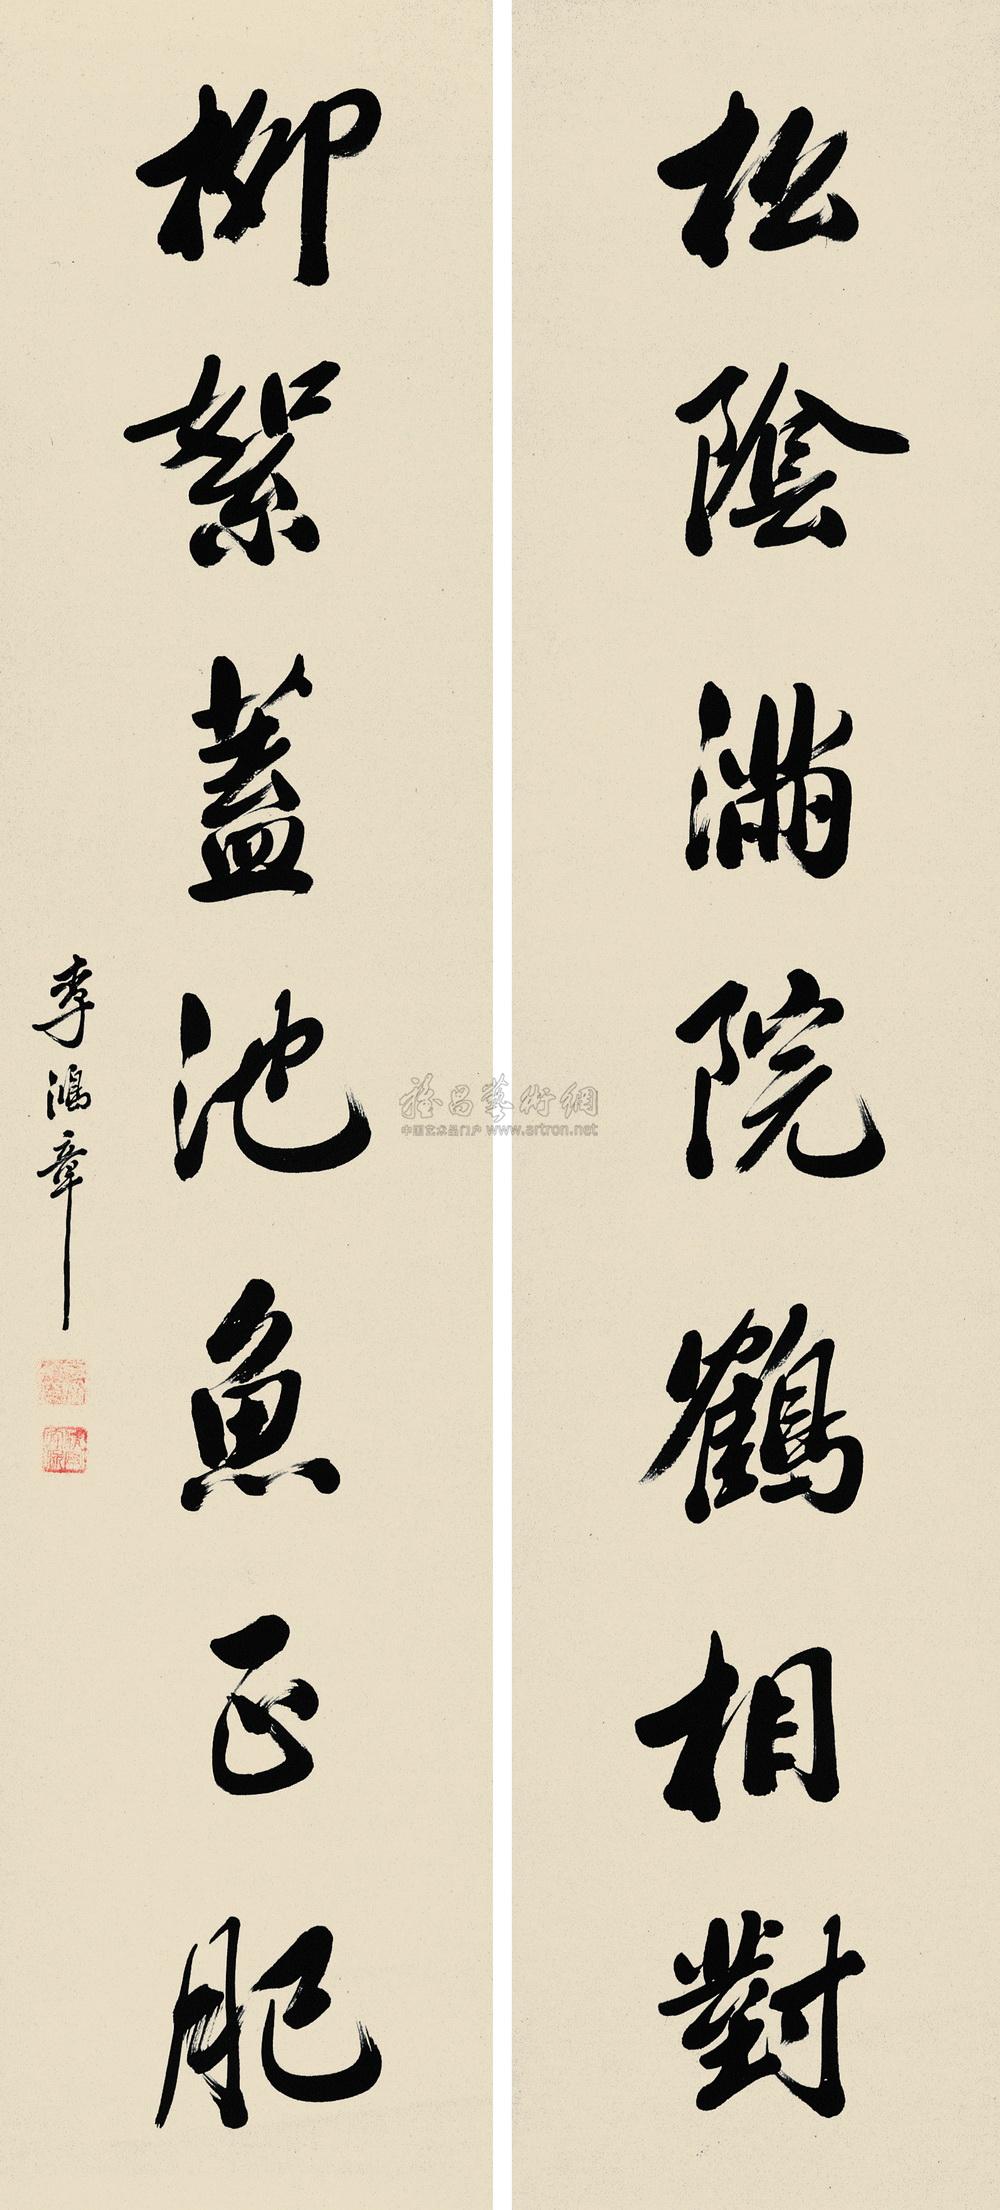 松陰滿院鶴相對
柳絮蓋池魚正肥
李鴻章
雅昌藝術網
中国艺术品门户 www.artron.net